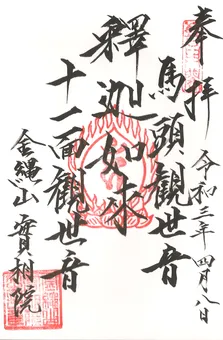 奉拝
令和三年四月八日
馬頭観世音
釋迦如来
十一面観世音
金縄山
實相院